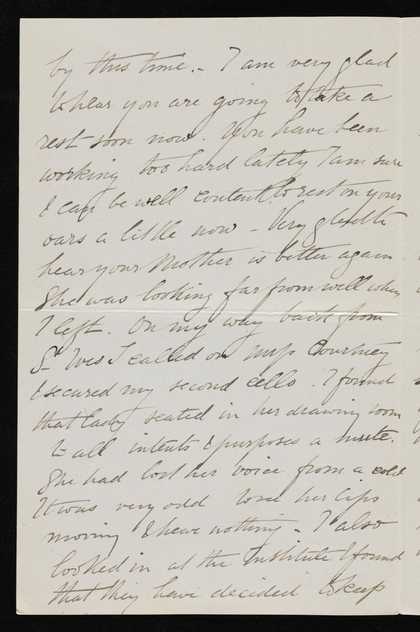 by this time. - I am very glad
to hear you are going to take a
rest soon now. You have been
working too hard lately I am sure
& can be well content to rest on your
oars a little now - Very glad to
hear your Mother is better again.
She was looking far from well when
I left. On my way back from
St Ives I called on Miss Courtney
& secured my second cello. I found
that lady seated in her drawing room
to all intents & purposes a mute.
She had lost her voice from a cold
It was very odd to see her lips
moving & hear nothing - I also
looked in at the Institute & found
that they have decided to keep